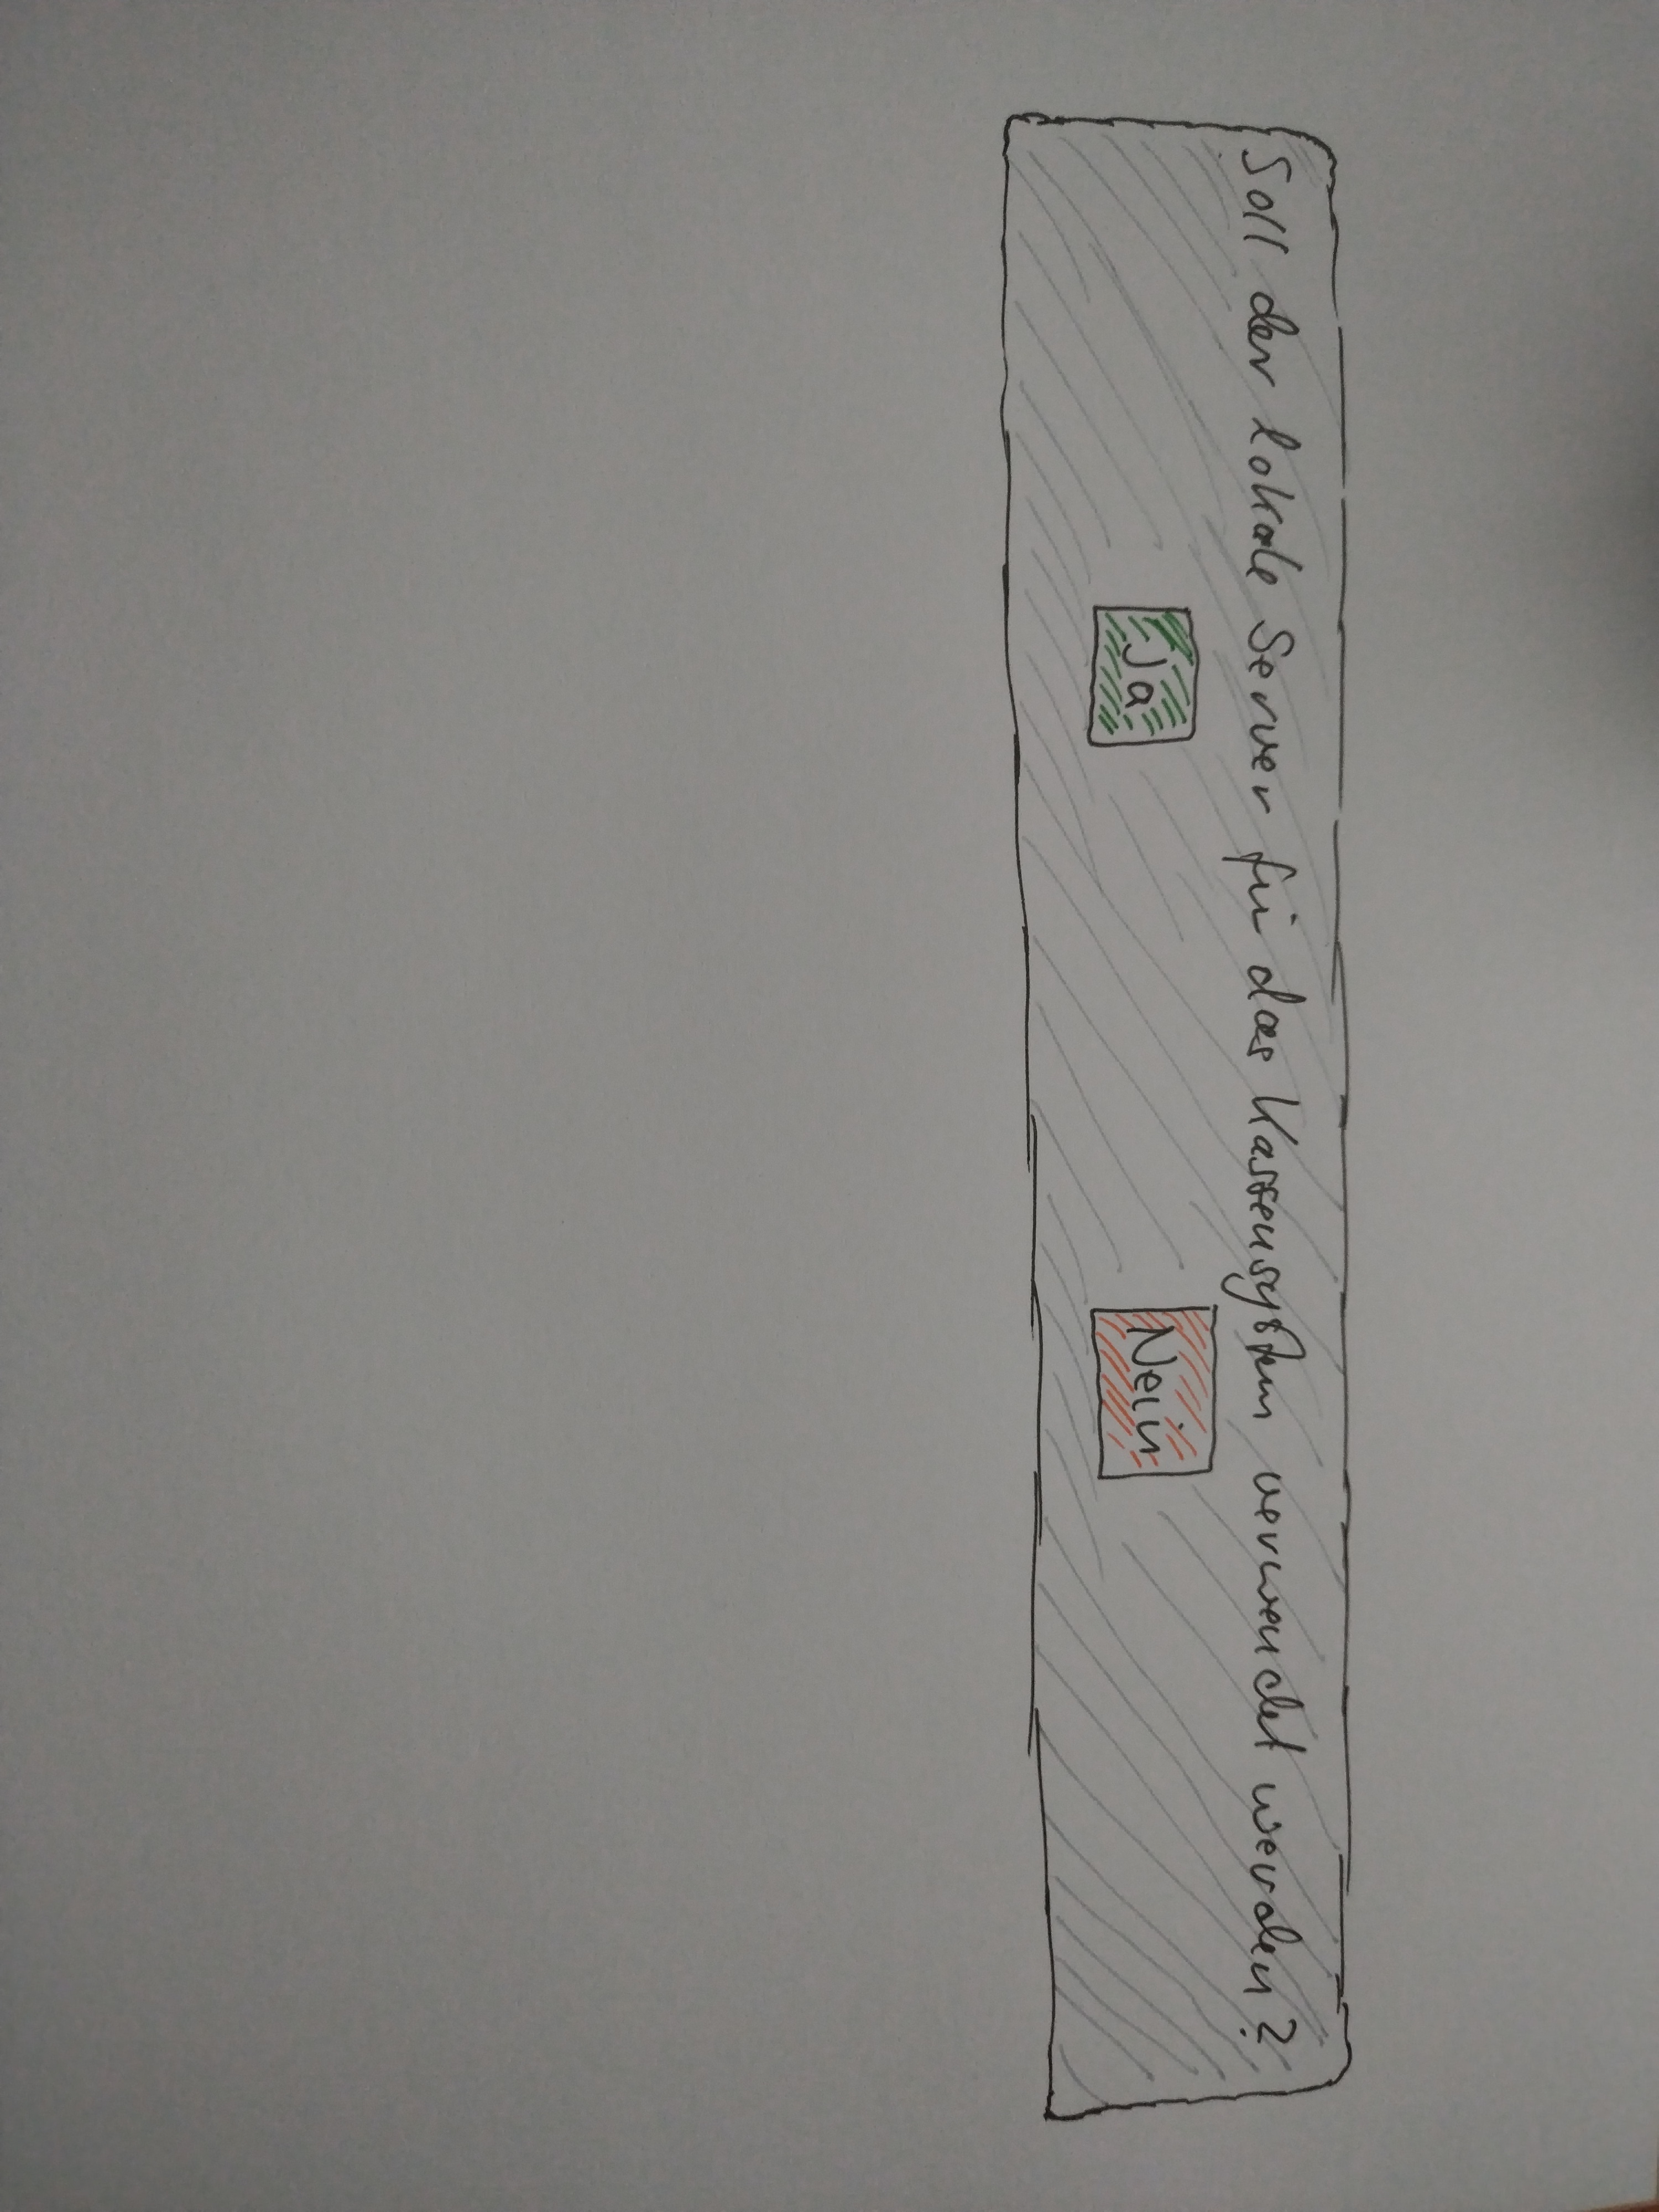 Soll der lokale Server für das Kassensystem verwendet werden?
Ja Nein